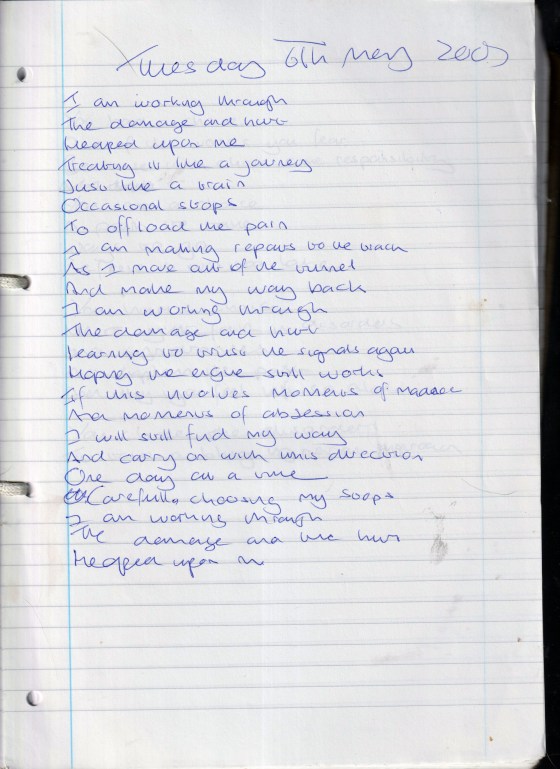 Tuesday 6Th May 2003
I am working through
The damage and hurt
Heaped upon me
Treating it like a journey
Just like a train
Occasional stops
To offload the pain
I am making repairs to the track
As I move out of the tunnel
And make my way back
I am working through
The damage and hurt
Learning to trust the signals again
Hoping the engine still works
If this involves moments of madness
And moments of obsession
I will still find my way
And carry on with this direction
One day at a time
Carefully choosing my stops
I am working through
The damage and the hurt
Heaped upon me